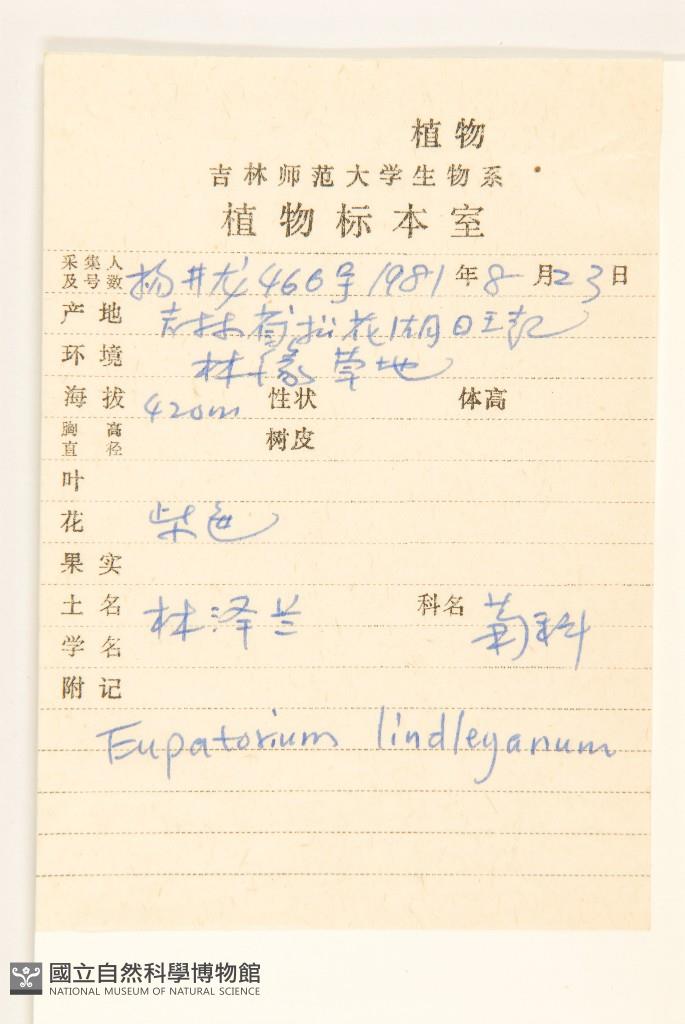 植物
吉林师范大学生物系
植物标本室
采集人及号数 杨井龙 466号 1981年8月23日
产地 吉林省松花湖日
环境 林缘草地
海拔 420m 性状 体高
胸高直径 树皮
叶
花 柴色
果实
土名 林泽兰 科名 菊科
学名
附记
Eupatorium lindleyanum
國立自然科學博物館
NATIONAL MUSEUM OF NATURAL SCIENCE